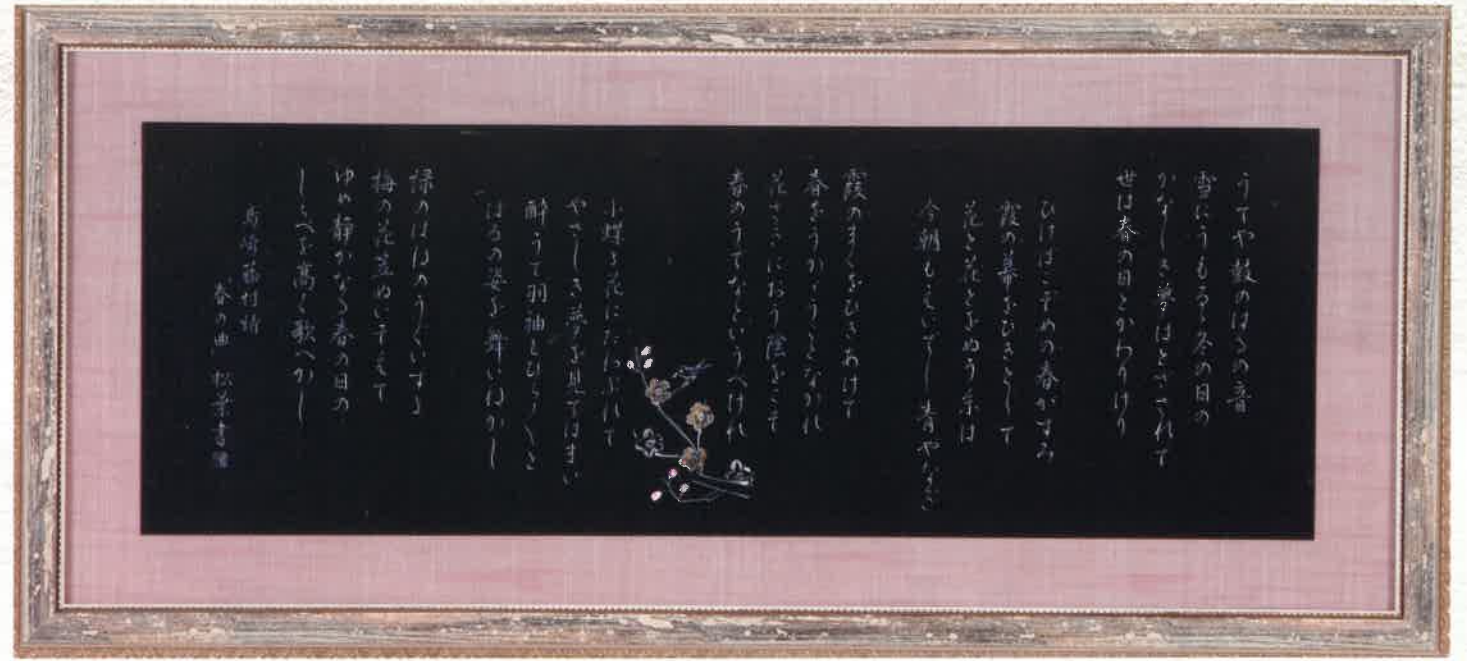 うてや鼓のはるの音
雪にうもるゝ冬の日の
かなしき夢はとざされて
世は春の日とかわりけり
ひけばこぞめの春がすみ
霞の幕をひきとじて
花と花とをぬう糸は
今朝もえいでし 青やなぎ
霞のまくをひきあけて
春をうかゞうことなかれ
花さきにおう陰をこそ
春のうてなというべけれ
小蝶よ花にたわぶれて
やさしき夢を見ては舞い
酔うて羽袖もひらひらと
はるの姿を舞いねかし
緑のはねのうぐいすよ
梅の花笠ぬいそえて
ゆめ静かなる春の日の
しらべを高く歌へかし
島崎藤村詩
春の曲 松葉書